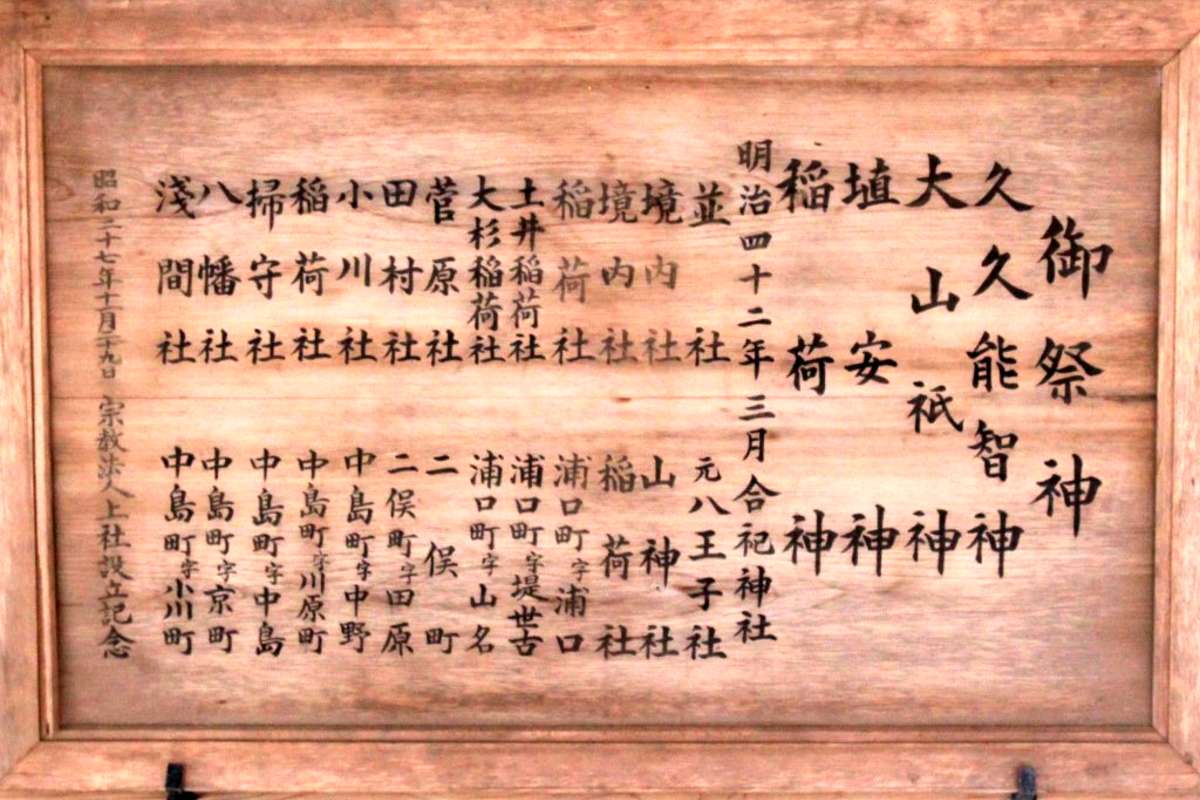 御祭神
久久能智神
大山祇神
埴安神
稲荷神
明治四十二年三月合祀神社
並社 元八王子社
境内社 山神社
境内社 稲荷社
稲荷社 浦口町字浦口
土井稲荷社 浦口町字堤世古
大杉稲荷社 浦口町字山名
菅原社 二俣町
田村社 二俣町字田原
小川社 中島町字中野
稲荷社 中島町字川原町
掃守社 中島町字中島
八幡社 中島町字京町
淺間社 中島町字小川町
昭和二十七年十一月二十九日 宗教法人上社設立記念